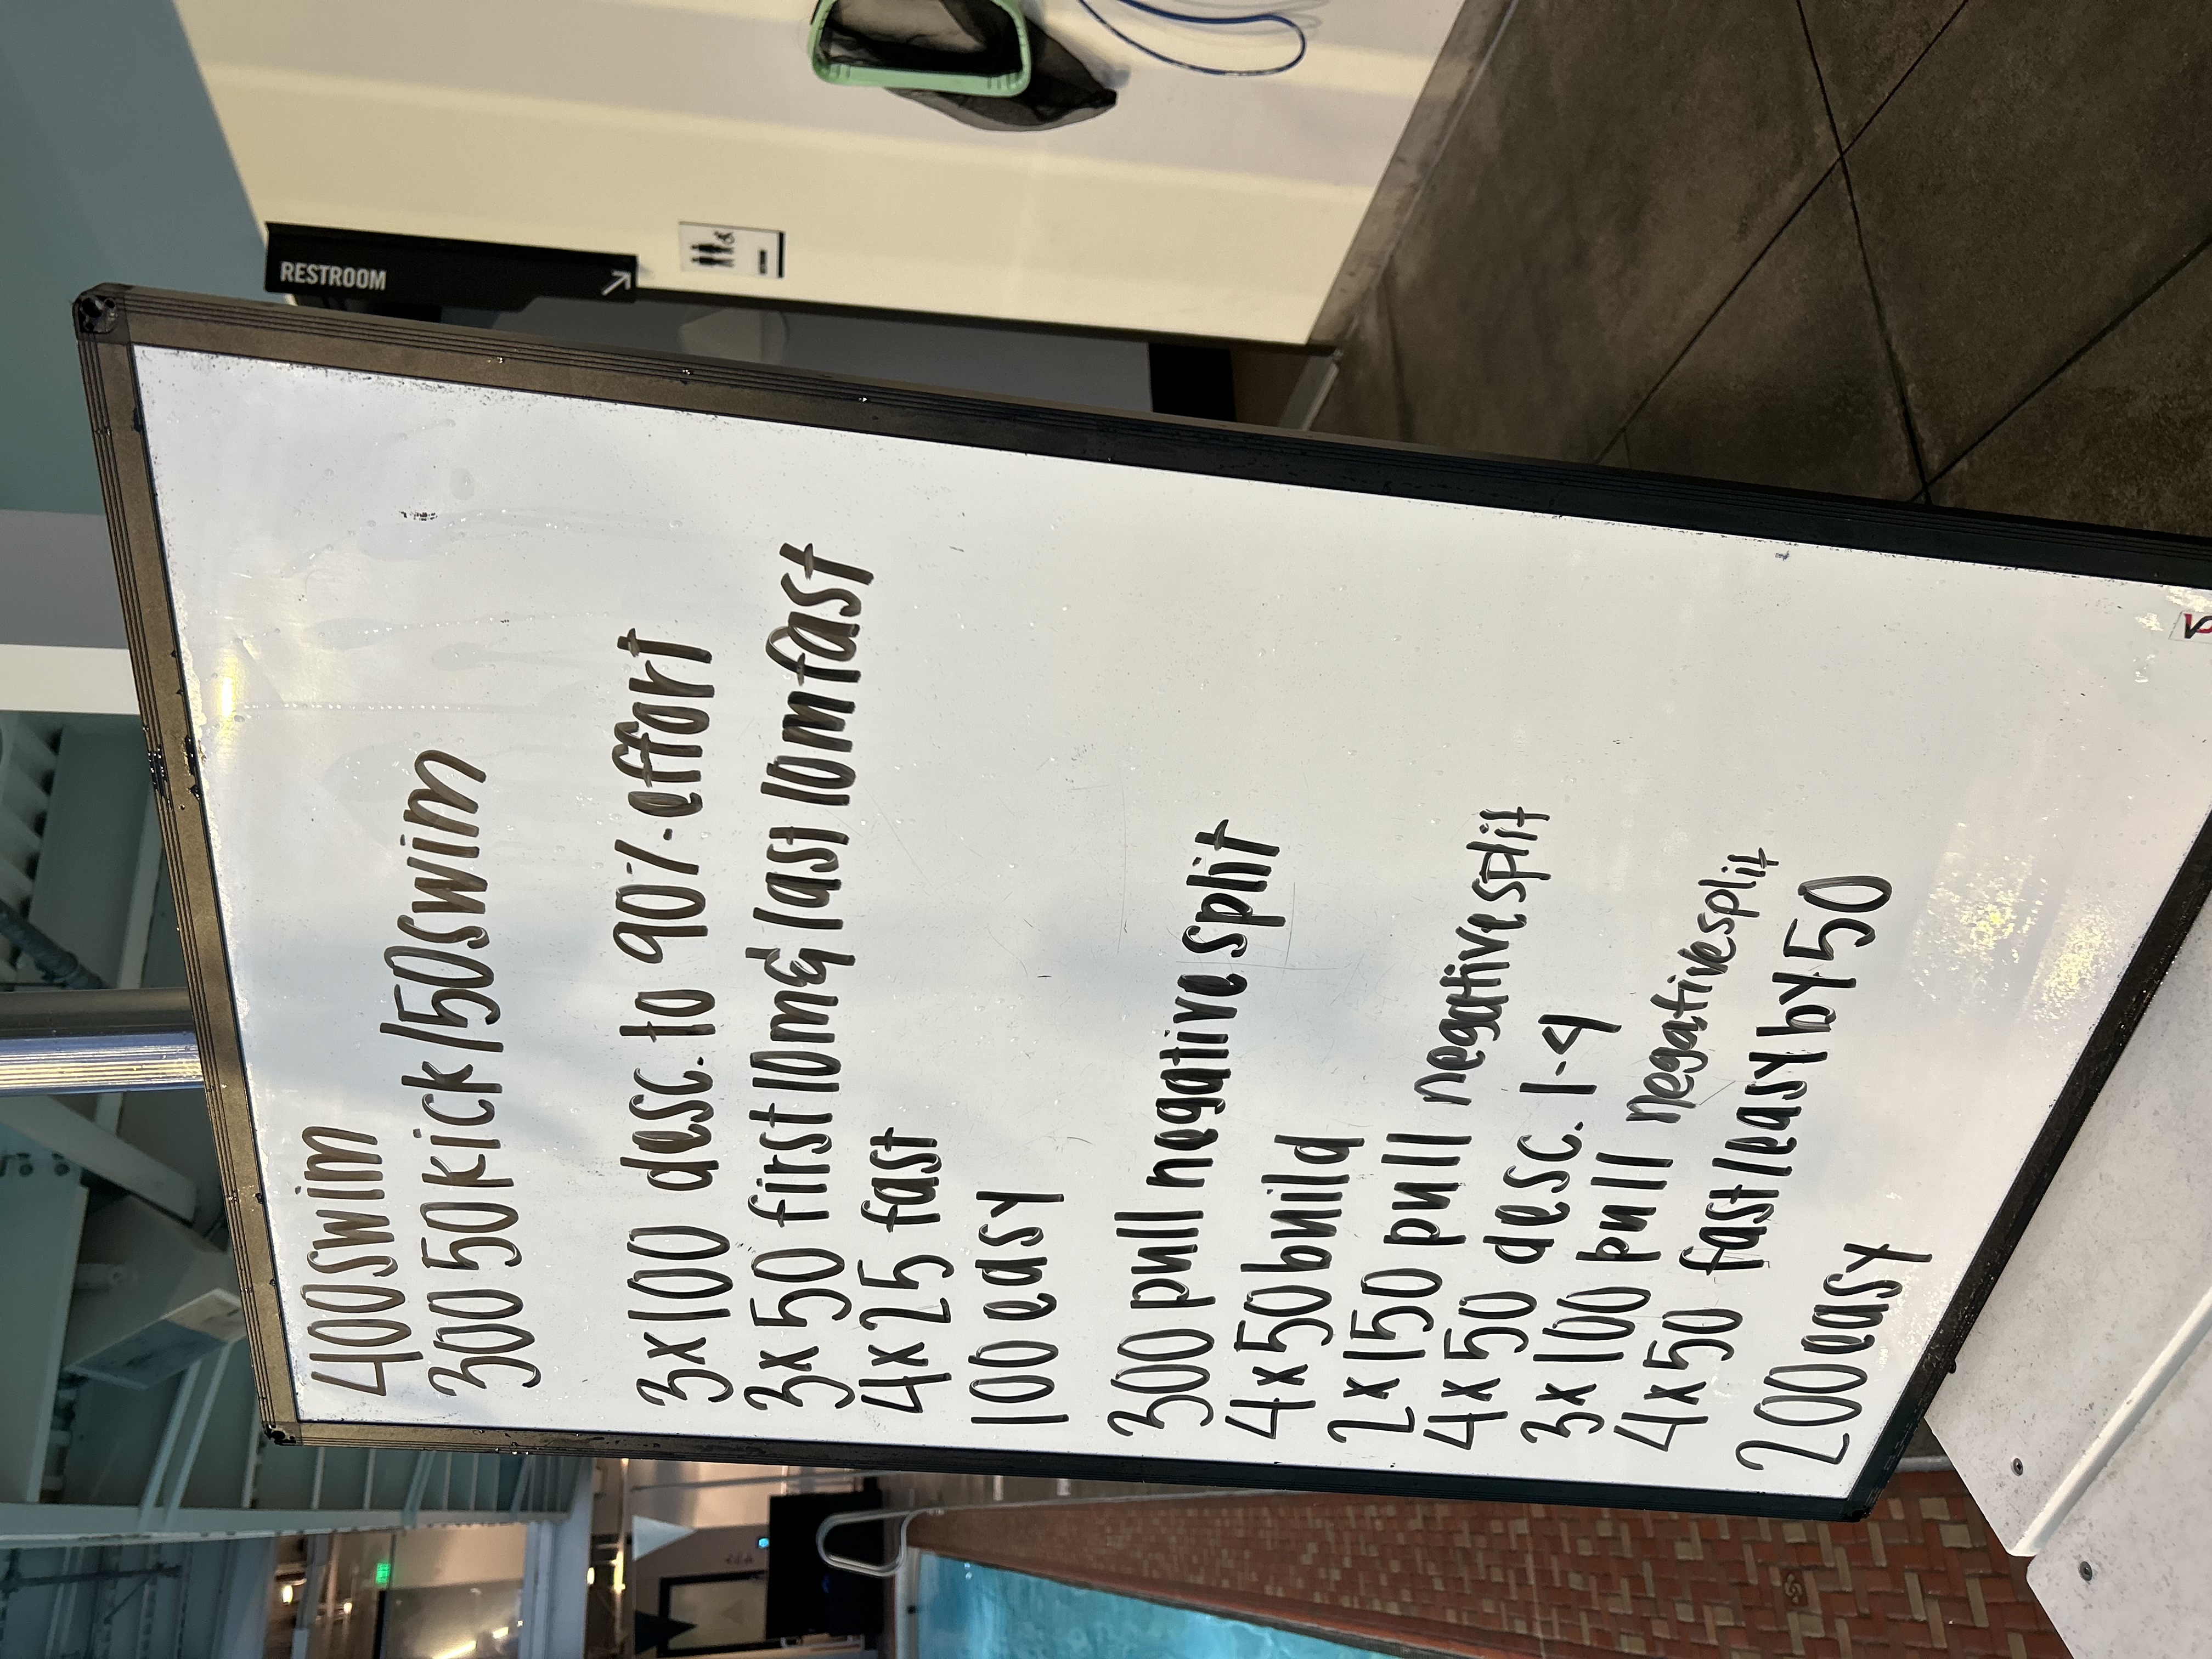 400 swim
300 50 kick/50 swim
3x100 desc. to 90% effort
3x50 first 10m & last 10m fast
4x25 fast
100 easy
300 pull negative split
4x50 build
2x150 pull negative split
4x50 desc. 1-4
3x100 pull negative split
4x50 fast/easy by 50
200 easy
RESTROOM